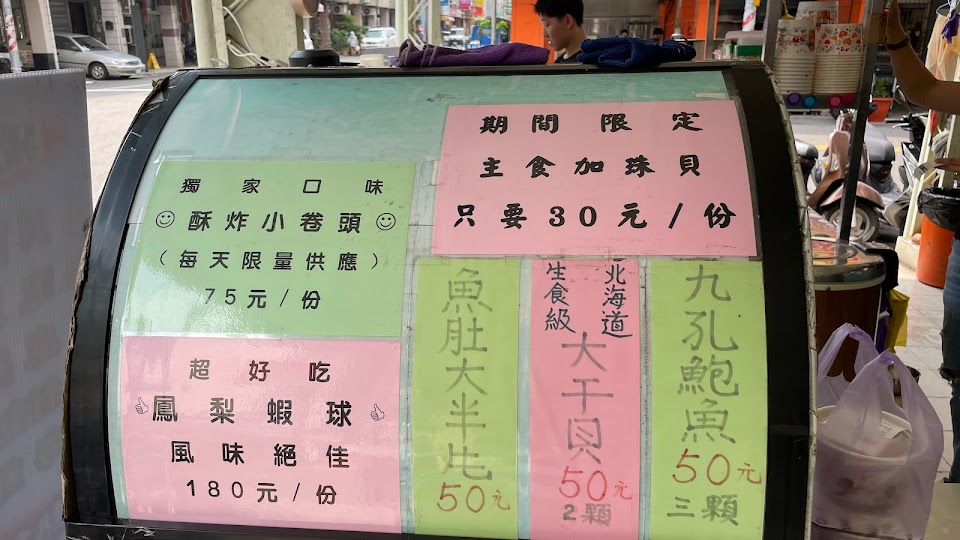 期間限定
主食加珠貝
只要30元/份
獨家口味
酥炸小卷頭
(每天限量供應)
75元/份
超好吃
鳳梨蝦球
風味絕佳
180元/份
魚肚大半
50元
北海道
生食級
大干貝
50元
2顆
九孔鮑魚
50元
三顆